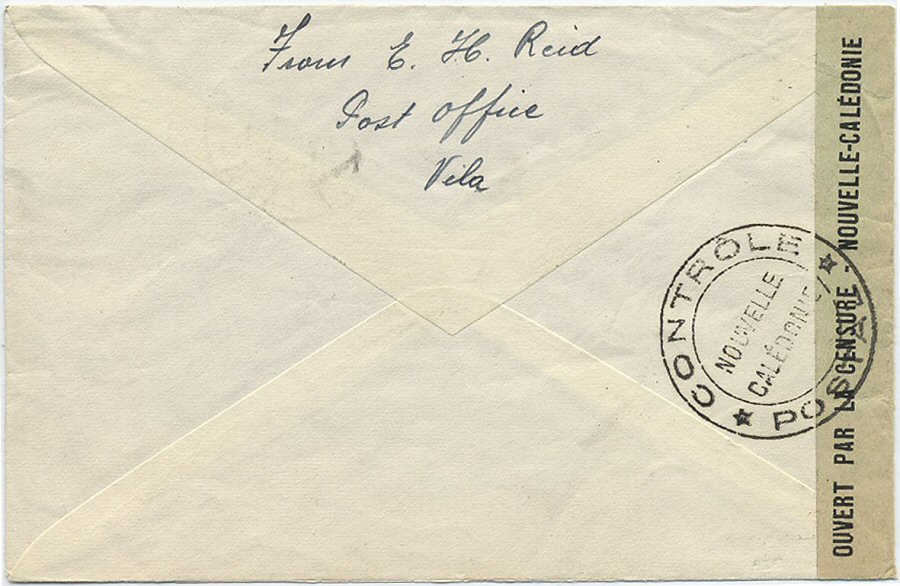 From E. H. Reid
Post Office
Vila
CONTRÔLE POSTAL
NOUVELLE
CALÉDONIE
OUVERT PAR LA CENSURE - NOUVELLE-CALÉDONIE